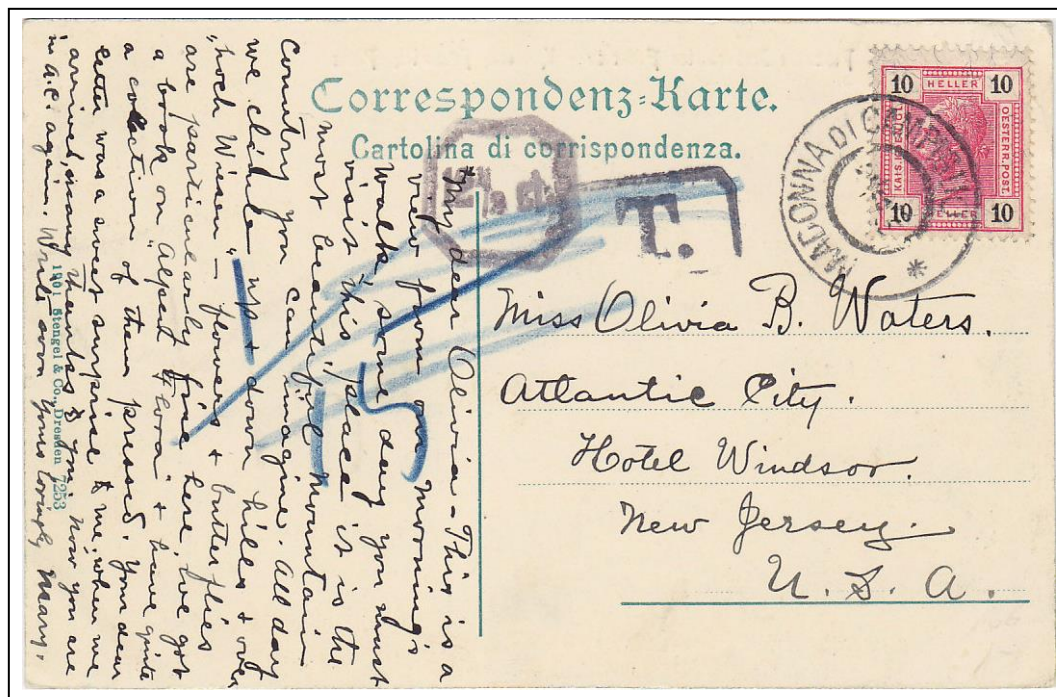 Correspondenz-Karte.
Cartolina di corrispondenza.
T.
10 HELLER 10
KAIS. KÖN. OESTERR. POST.
10 HELLER 10
MADONNA DI CAMPIGLIO
Miss Olivia B. Waters.
Atlantic City.
Hotel Windsor.
New Jersey.
U. S. A.
My dear Olivia - This is a
view from our morning's
walk some day you must
visit this place it is the
most beautiful mountain
country you can imagine. All day
we climb up + down hills + over
"hoch Wiesen" - flowers + butterflies
are particularly fine here. I've got
a book on "Alpen Flora" + have quite
a collection of them pressed. Your dear
letter was a sweet surprise to me, when we
arrived, many thanks to you, now you are
in A.C. again. Write soon yours lovingly Mary.
15
1901 Stengel & Co., Dresden 7253